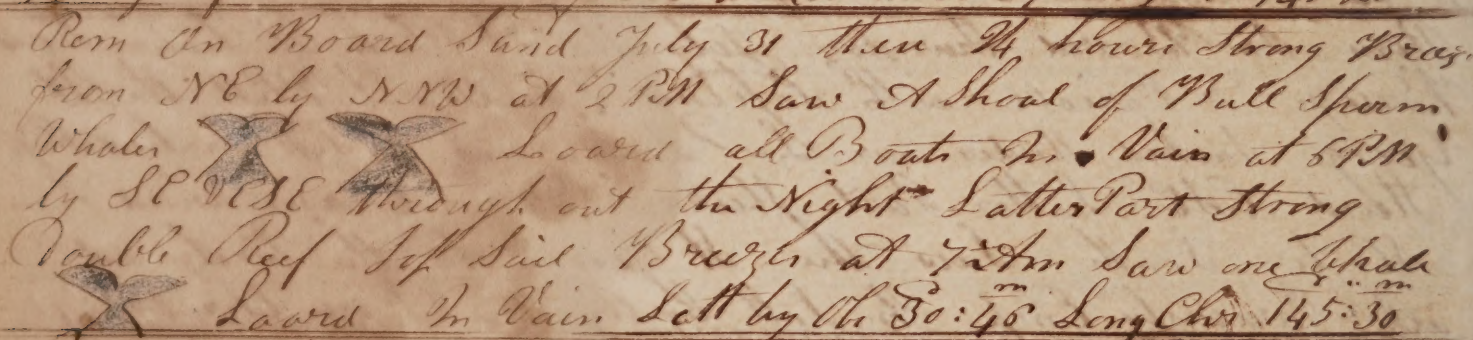 Rem On Board Sund July 31 these 24 hours Strong Breez
from NE by NNW at 2 PM Saw A Shoal of Bull Sperm
Whales Loard all Boats In Vain at 6 PM
by SE ESE through out the Night Latter Part Strong
Double Reef Top Sail Breezes at 7 Am Saw one Whale
Loard In Vain Latt by Ob 30:46 Long Chr 145:30